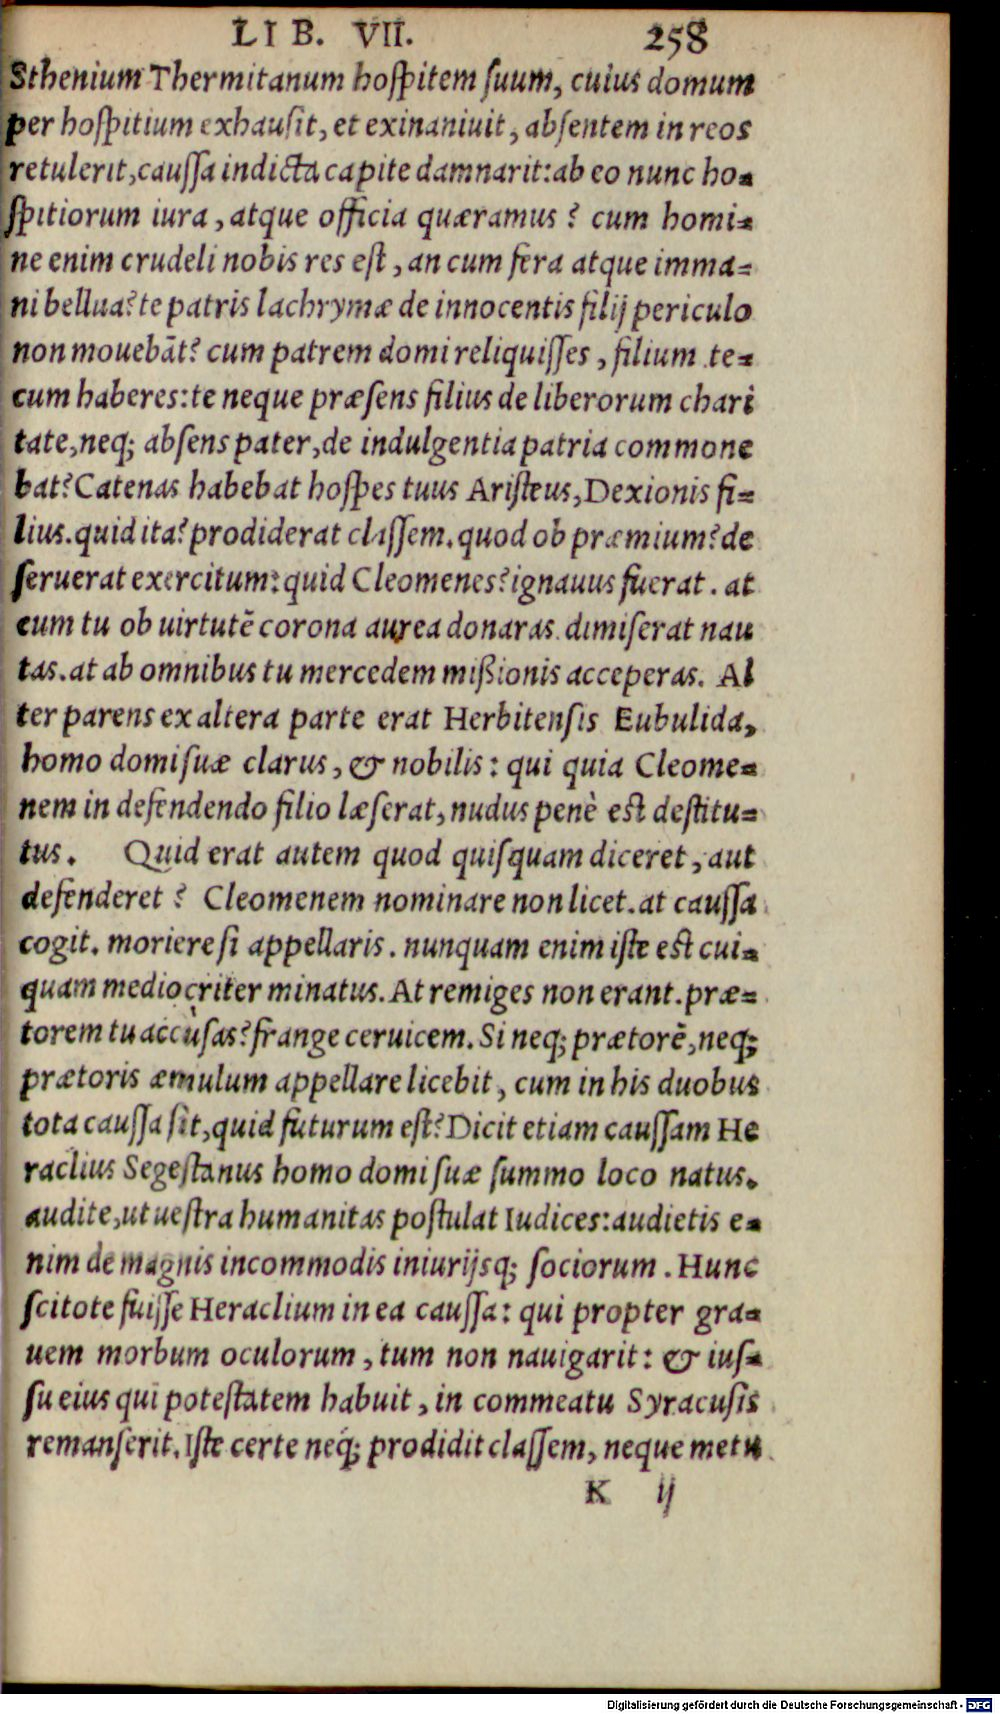 LIB. VII. 258
Sthenium Thermitanum hoſpitem ſuum, cuius domum
per hoſpitium exhauſit, et exinaniuit, abſentem in reos
retulerit, cauſſa indicta capite damnarit: ab eo nunc ho-
ſpitiorum iura, atque officia quæramus? cum homi-
ne enim crudeli nobis res eſt, an cum fera atque imma-
ni bellua? te patris lachrymæ de innocentis filij periculo
non mouebãt? cum patrem domi reliquiſſes, filium te-
cum haberes: te neque præſens filius de liberorum chari
tate, neq; abſens pater, de indulgentia patria commone
bat? Catenas habebat hoſpes tuus Ariſteus, Dexionis fi-
lius. quid ita? prodiderat claſſem. quod ob præmium? de
ſeruerat exercitum: quid Cleomenes? ignauus fuerat. at
eum tu ob uirtutẽ corona aurea donaras. dimiſerat nau
tas. at ab omnibus tu mercedem mißionis acceperas. Al
ter parens ex altera parte erat Herbitenſis Eubulida,
homo domi ſuæ clarus, & nobilis: qui quia Cleome-
nem in defendendo filio læſerat, nudus penè eſt deſtitu-
tus. Quid erat autem quod quiſquam diceret, aut
defenderet? Cleomenem nominare non licet. at cauſſa
cogit. moriere ſi appellaris. nunquam enim iſte eſt cui-
quam mediocriter minatus. At remiges non erant. præ-
torem tu accuſas? frange ceruicem. Si neq; prætorẽ, neq;
prætoris æmulum appellare licebit, cum in his duobus
tota cauſſa ſit, quid futurum eſt? Dicit etiam cauſſam He
raclius Segeſtanus homo domi ſuæ ſummo loco natus.
audite, ut ueſtra humanitas poſtulat Iudices: audietis e-
nim de magnis incommodis iniurijsq; ſociorum. Hunc
ſcitote fuiſſe Heraclium in ea cauſſa: qui propter gra-
uem morbum oculorum, tum non nauigarit: & iuſ-
ſu eius qui poteſtatem habuit, in commeatu Syracuſis
remanſerit. Iſte certe neq; prodidit claſſem, neque metu
K ij
Digitalisierung gefördert durch die Deutsche Forschungsgemeinschaft - DFG